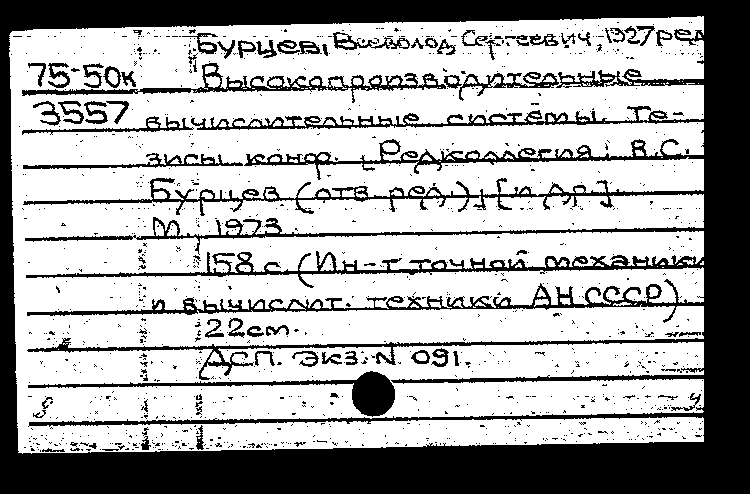 Бурцев, Всеволод Сергеевич, 1927 ред
75-50к Высокопроизводительные
3557 вычислительные системы. Те-
зисы конф. [Редколлегия: В.С.
Бурцев (отв. ред.), [и др.].
М. 1973
158 с. (Ин-т точной механики
и вычислит. техники АН СССР)
22см.
ДСП. Экз. N 091.
8